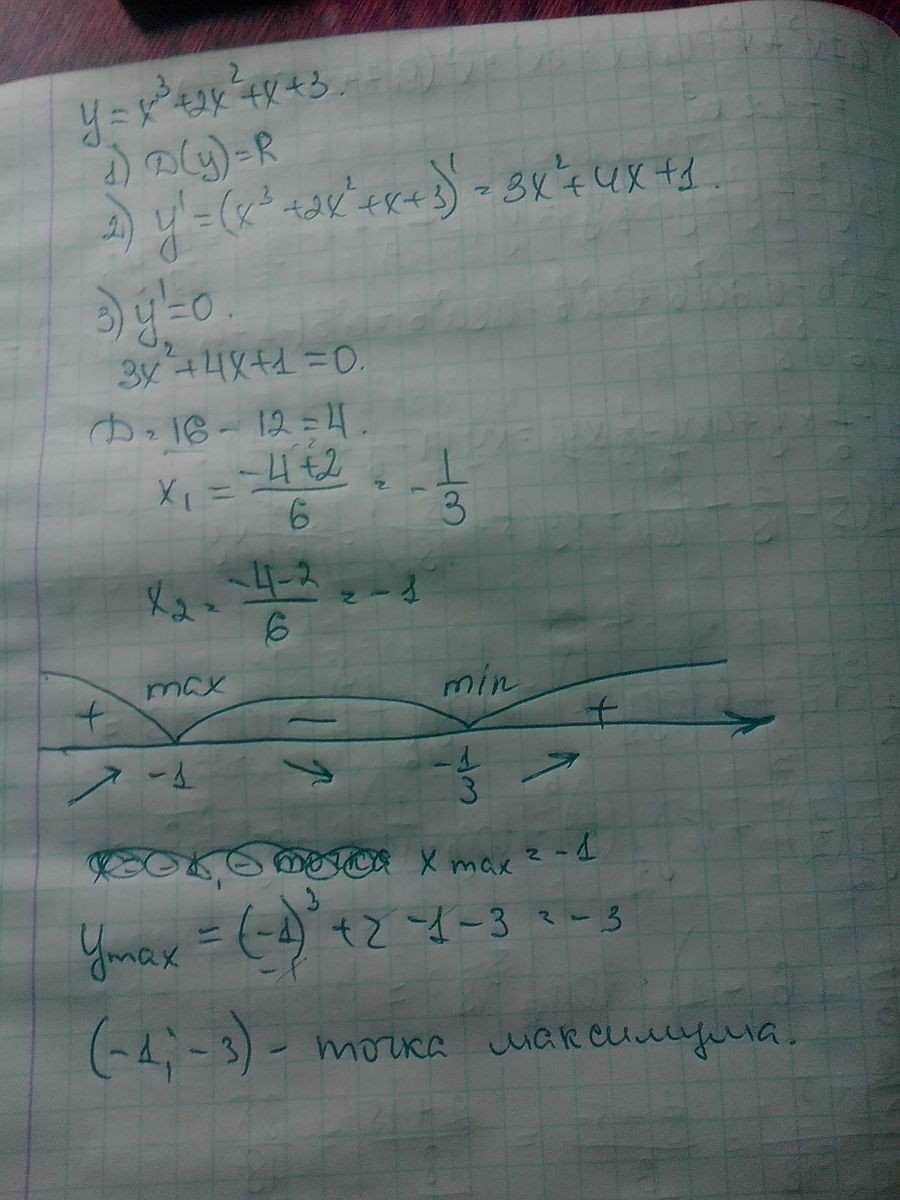 y = x³ + 2x² + x + 3.
1) D(y) = R
2) y' = (x³ + 2x² + x + 3)' = 3x² + 4x + 1.
3) y' = 0.
3x² + 4x + 1 = 0.
D = 16 - 12 = 4.
x₁ = (-4+2)/6 = -1/3
x₂ = (-4-2)/6 = -1
max min
+ — +
↗ -1 ↘ -1/3 ↗
x max = -1
y max = (-1)³ + 2 - 1 - 3 = -3
(-1; -3) - точка максимума.